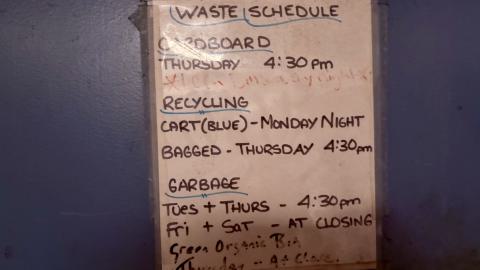 WASTE SCHEDULE
CARDBOARD
THURSDAY 4:30 pm
RECYCLING
CART (BLUE) - MONDAY NIGHT
BAGGED - THURSDAY 4:30pm
GARBAGE
TUES + THURS - 4:30pm
FRI + SAT - AT CLOSING
Green Organic Bin
Thursday - At Close